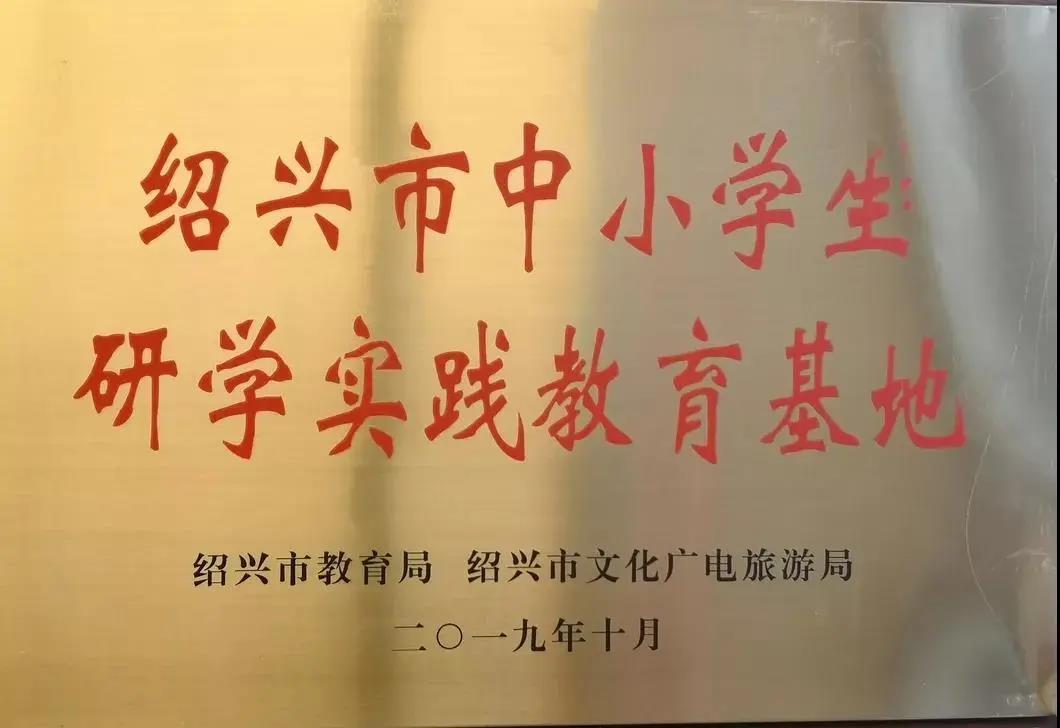 绍兴市中小学生
研学实践教育基地
绍兴市教育局 绍兴市文化广电旅游局
二〇一九年十月